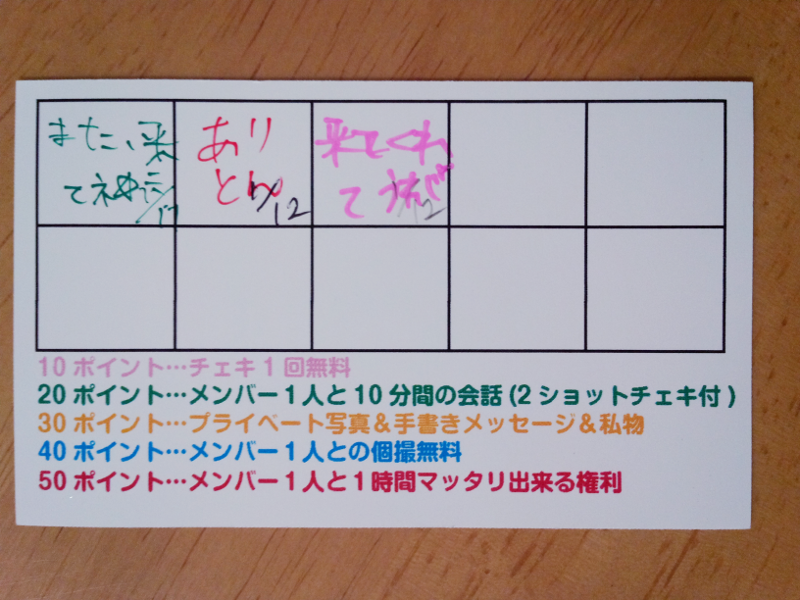 また、来
て
あり
とん
1/12
来てくれ
て
10ポイント…チェキ1回無料
20ポイント…メンバー1人と10分間の会話(2ショットチェキ付)
30ポイント…プライベート写真&手書きメッセージ&私物
40ポイント…メンバー1人との個撮無料
50ポイント…メンバー1人と1時間マッタリ出来る権利